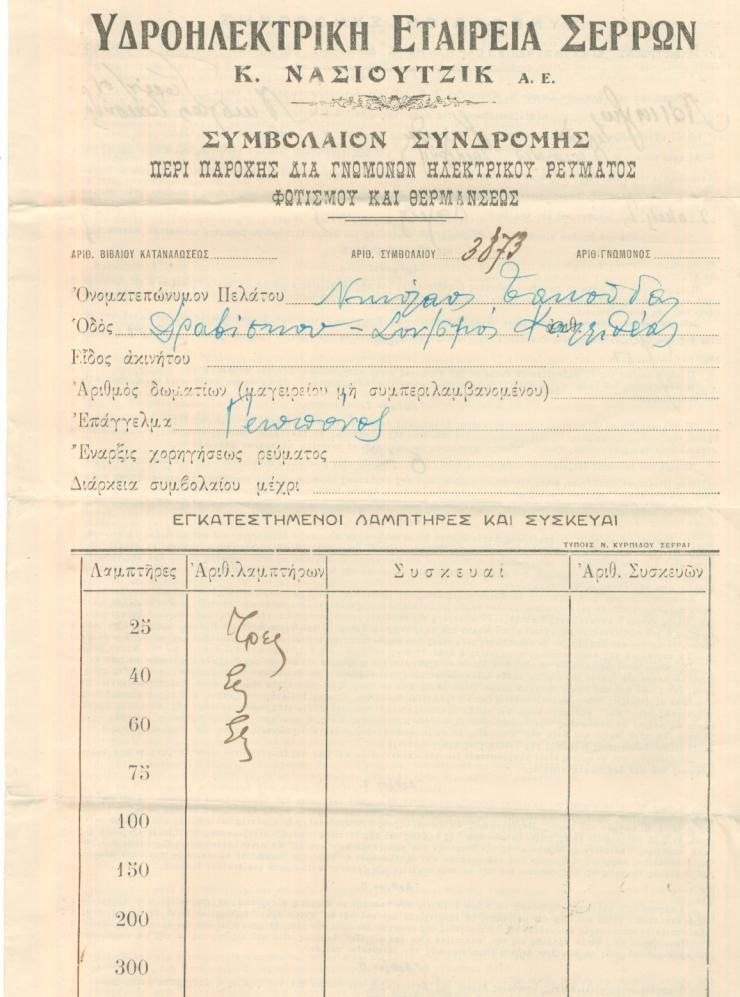 ΥΔΡΟΗΛΕΚΤΡΙΚΗ ΕΤΑΙΡΕΙΑ ΣΕΡΡΩΝ
Κ. ΝΑΣΙΟΥΤΖΙΚ Α. Ε.
ΣΥΜΒΟΛΑΙΟΝ ΣΥΝΔΡΟΜΗΣ
ΠΕΡΙ ΠΑΡΟΧΗΣ ΔΙΑ ΓΝΩΜΟΝΩΝ ΗΛΕΚΤΡΙΚΟΥ ΡΕΥΜΑΤΟΣ
ΦΩΤΙΣΜΟΥ ΚΑΙ ΘΕΡΜΑΝΣΕΩΣ
ΑΡΙΘ. ΒΙΒΛΙΟΥ ΚΑΤΑΝΑΛΩΣΕΩΣ ΑΡΙΘ. ΣΥΜΒΟΛΑΙΟΥ 3873 ΑΡΙΘ·ΓΝΩΜΟΝΟΣ
Ὀνοματεπώνυμον Πελάτου Νικόλαος
Ὁδὸς Δραβίσκου –
Εἶδος ἀκινήτου
Ἀριθμὸς δωματίων (μαγειρείου μὴ συμπεριλαμβανομένου)
Ἐπάγγελμα Γεωπόνος
Ἔναρξις χορηγήσεως ρεύματος
Διάρκεια συμβολαίου μέχρι
ΕΓΚΑΤΕΣΤΗΜΕΝΟΙ ΛΑΜΠΤΗΡΕΣ ΚΑΙ ΣΥΣΚΕΥΑΙ
ΤΥΠΟΙΣ Ν. ΚΥΡΠΙΔΟΥ ΣΕΡΡΑΙ
Λαμπτῆρες Ἀριθ. λαμπτήρων Συσκευαὶ Ἀριθ. Συσκευῶν
25 Τρεις
40 Εξ
60 Εξ
75
100
150
200
300